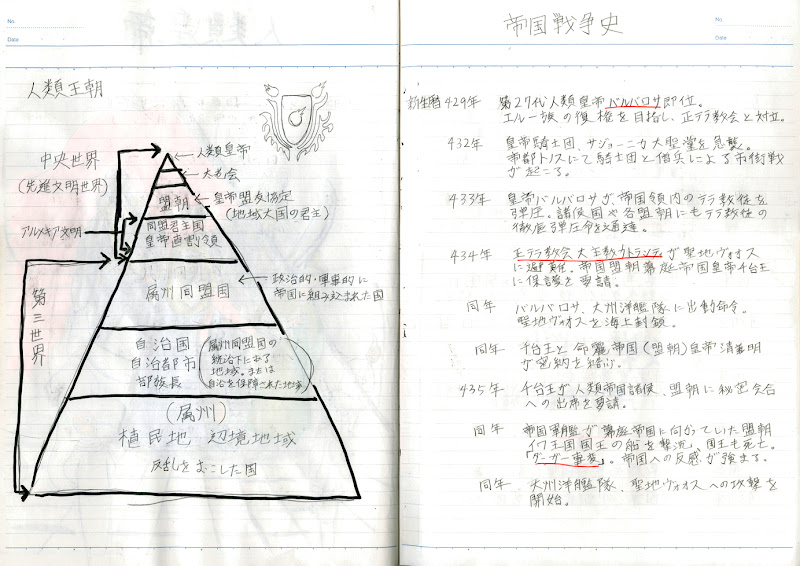 No.
Date
人類王朝
人類皇帝
大老会
中央世界
(先進文明世界)
盟朝
皇帝盟友協定
(地域大国の君主)
アルメキア文明
同盟君主国
皇帝直割領
第三世界
属州同盟国
政治的・軍事的に
帝国に組み込まれた国
自治国
自治都市
部族長
属州同盟国の
統治下にある
地域。または
自治を保障された地域
(属州)
植民地 辺境地域
反乱をおこした国
帝国戦争史
No.
Date
新生暦429年 第27代人類皇帝バルバロサ即位。
エルー族の復権を目指し、正テラ教会と対立。
432年 皇帝騎士団、サジョーニカ大聖堂を急襲。
帝都トノスにて騎士団と僧兵による市街戦
が起こる。
433年 皇帝バルバロサが、帝国領内のテラ教徒を
弾圧。諸侯国や各盟朝にもテラ教徒の
徹底弾圧命を通達。
434年 正テラ教会大主教 が聖地ヴォオス
に避難。帝国盟朝 帝国皇帝千台王
に保護を要請。
同年 バルバロサ、大州洋艦隊に出動命令。
聖地ヴォオスを海上封鎖。
同年 千台王と 帝国(盟朝)皇帝清 明
が密約を結ぶ。
435年 千台王が人類帝国諸侯、盟朝に秘密会合
への出席を要請。
同年 帝国軍艦が 帝国に向かっていた盟朝
イワ王国国王の船を撃沈し、国王も死亡。
「ダーガー事変」。帝国への反感が強まる。
同年 大州洋艦隊、聖地ヴォオスへの攻撃を
開始。